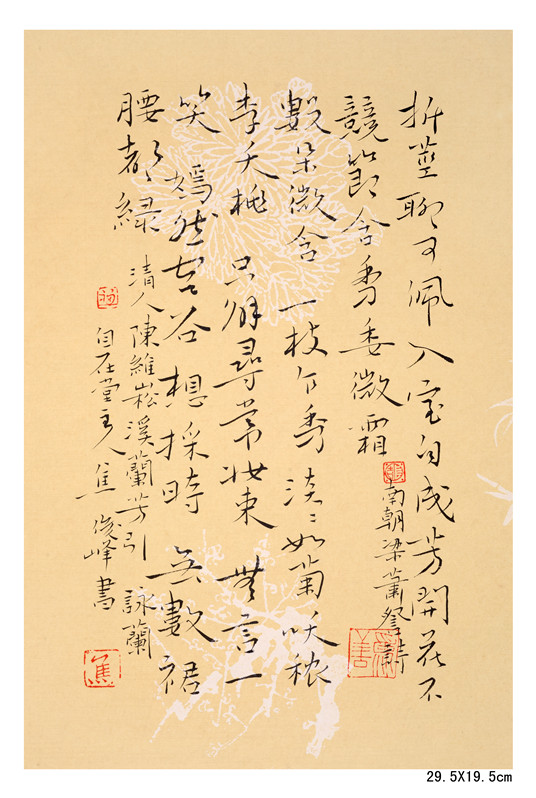 折莖聊可佩入室自成芳開花不
競節含秀委微霜
南朝梁蕭詧詩
數朵微含一枝乍秀淡〻如菊咲秾
李夭桃只解尋常妝束無言一
笑嫣然空谷想採時无數裙
腰都綠
清人陳維崧溪蘭芳引詠蘭
自在堂主人焦俊峰書
焦
29.5X19.5cm